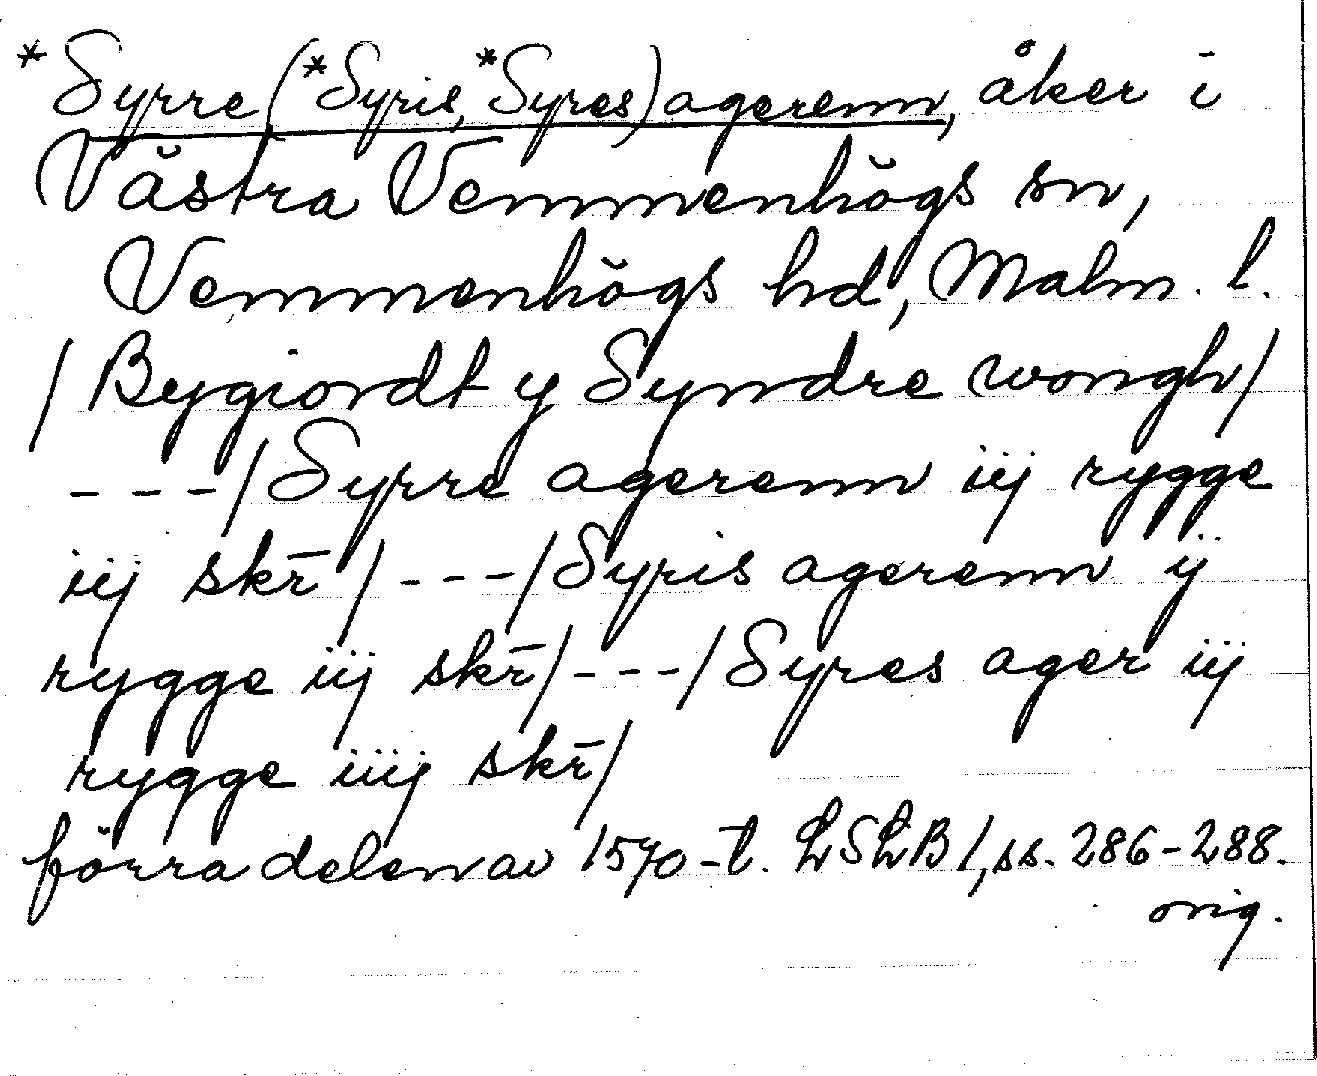 *Syrre (*Syris, *Syres) agerenn, åker i
Västra Vemmenhögs sn,
Vemmenhögs hd, Malm. l.
/ Bygiordt y Syndre wongh /
- - - / Syrre agerenn iij rygge
iij skr̄ / - - - / Syris agerenn ij
rygge iij skr̄ / - - - / Syres ager iij
rygge iiij skr̄ /
förra delen av 1570-t. LSLB 1, ss. 286-288.
orig.